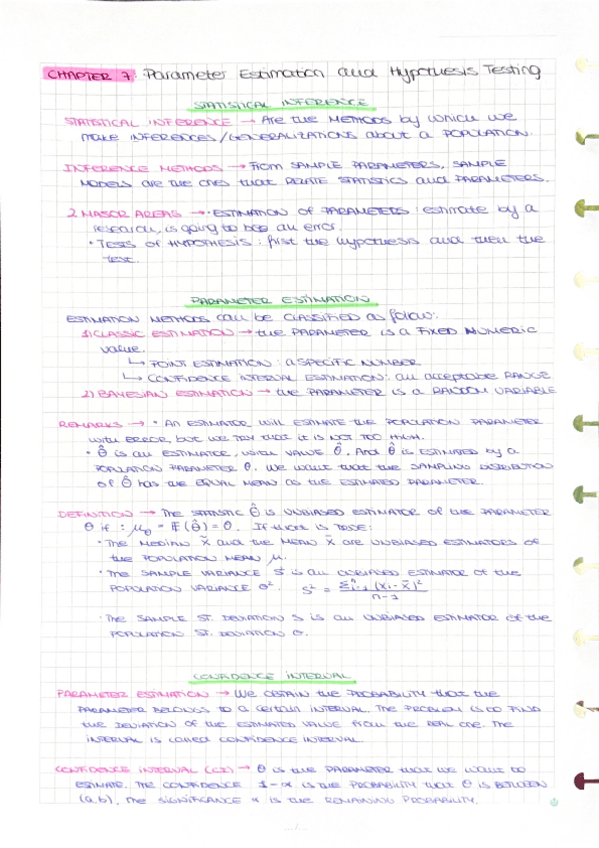 CHAPTER 7: Parameter Estimation and Hypothesis Testing
STATISTICAL INFERENCE
STATISTICAL INFERENCE → Are the METHODS by which we
make INFERENCES/GENERALIZATIONS about a POPULATION.
INFERENCE METHODS → From SAMPLE PARAMETERS, SAMPLE
MODELS are the ones that RELATE STATISTICS and PARAMETERS.
2 MAJOR AREAS → · ESTIMATION of PARAMETERS: estimate by a
research, is going to be an error.
· TESTS of HYPOTHESIS: first the hypothesis and then the
test.
PARAMETER ESTIMATION
ESTIMATION METHODS can be CLASSIFIED as follow:
1) CLASSIC ESTIMATION → the PARAMETER is a FIXED NUMERIC
value.
↳ POINT ESTIMATION: a SPECIFIC NUMBER
↳ CONFIDENCE INTERVAL ESTIMATION: an acceptable RANGE
2) BAYESIAN ESTIMATION → the PARAMETER is a RANDOM VARIABLE
REMARKS → · AN ESTIMATOR WILL ESTIMATE the POPULATION PARAMETER
with ERROR, but we TRY that it is NOT TOO HIGH.
· Θ̂ is an ESTIMATOR, with VALUE θ̂. And θ̂ is ESTIMATED by a
POPULATION PARAMETER θ. We want that the SAMPLING DISTRIBUTION
of Θ̂ has the EQUAL MEAN as the ESTIMATED PARAMETER.
DEFINITION → The STATISTIC Θ̂ is UNBIASED ESTIMATOR of the PARAMETER
θ if: μ_θ = E(Θ̂) = θ. If there is TRUE:
· The MEDIAN x̃ and the MEAN x̄ are UNBIASED ESTIMATORS of
the POPULATION MEAN μ.
· The SAMPLE VARIANCE S² is an UNBIASED ESTIMATOR of the
POPULATION VARIANCE σ². S² = Σⁿᵢ₌₁ (xᵢ - x̄)² / n-1
· The SAMPLE ST. DEVIATION S is an UNBIASED ESTIMATOR of the
POPULATION ST. DEVIATION σ.
CONFIDENCE INTERVAL
PARAMETER ESTIMATION → We OBTAIN the PROBABILITY that the
PARAMETER BELONGS to a CERTAIN INTERVAL. The PROBLEM is to FIND
the DEVIATION of the ESTIMATED VALUE from the REAL one. The
INTERVAL is called CONFIDENCE INTERVAL.
CONFIDENCE INTERVAL (CI) → θ is the PARAMETER that we WANT to
ESTIMATE. The CONFIDENCE 1-α is the PROBABILITY that θ is BETWEEN
(a,b). The SIGNIFICANCE α is the REMAINING PROBABILITY.
.../...